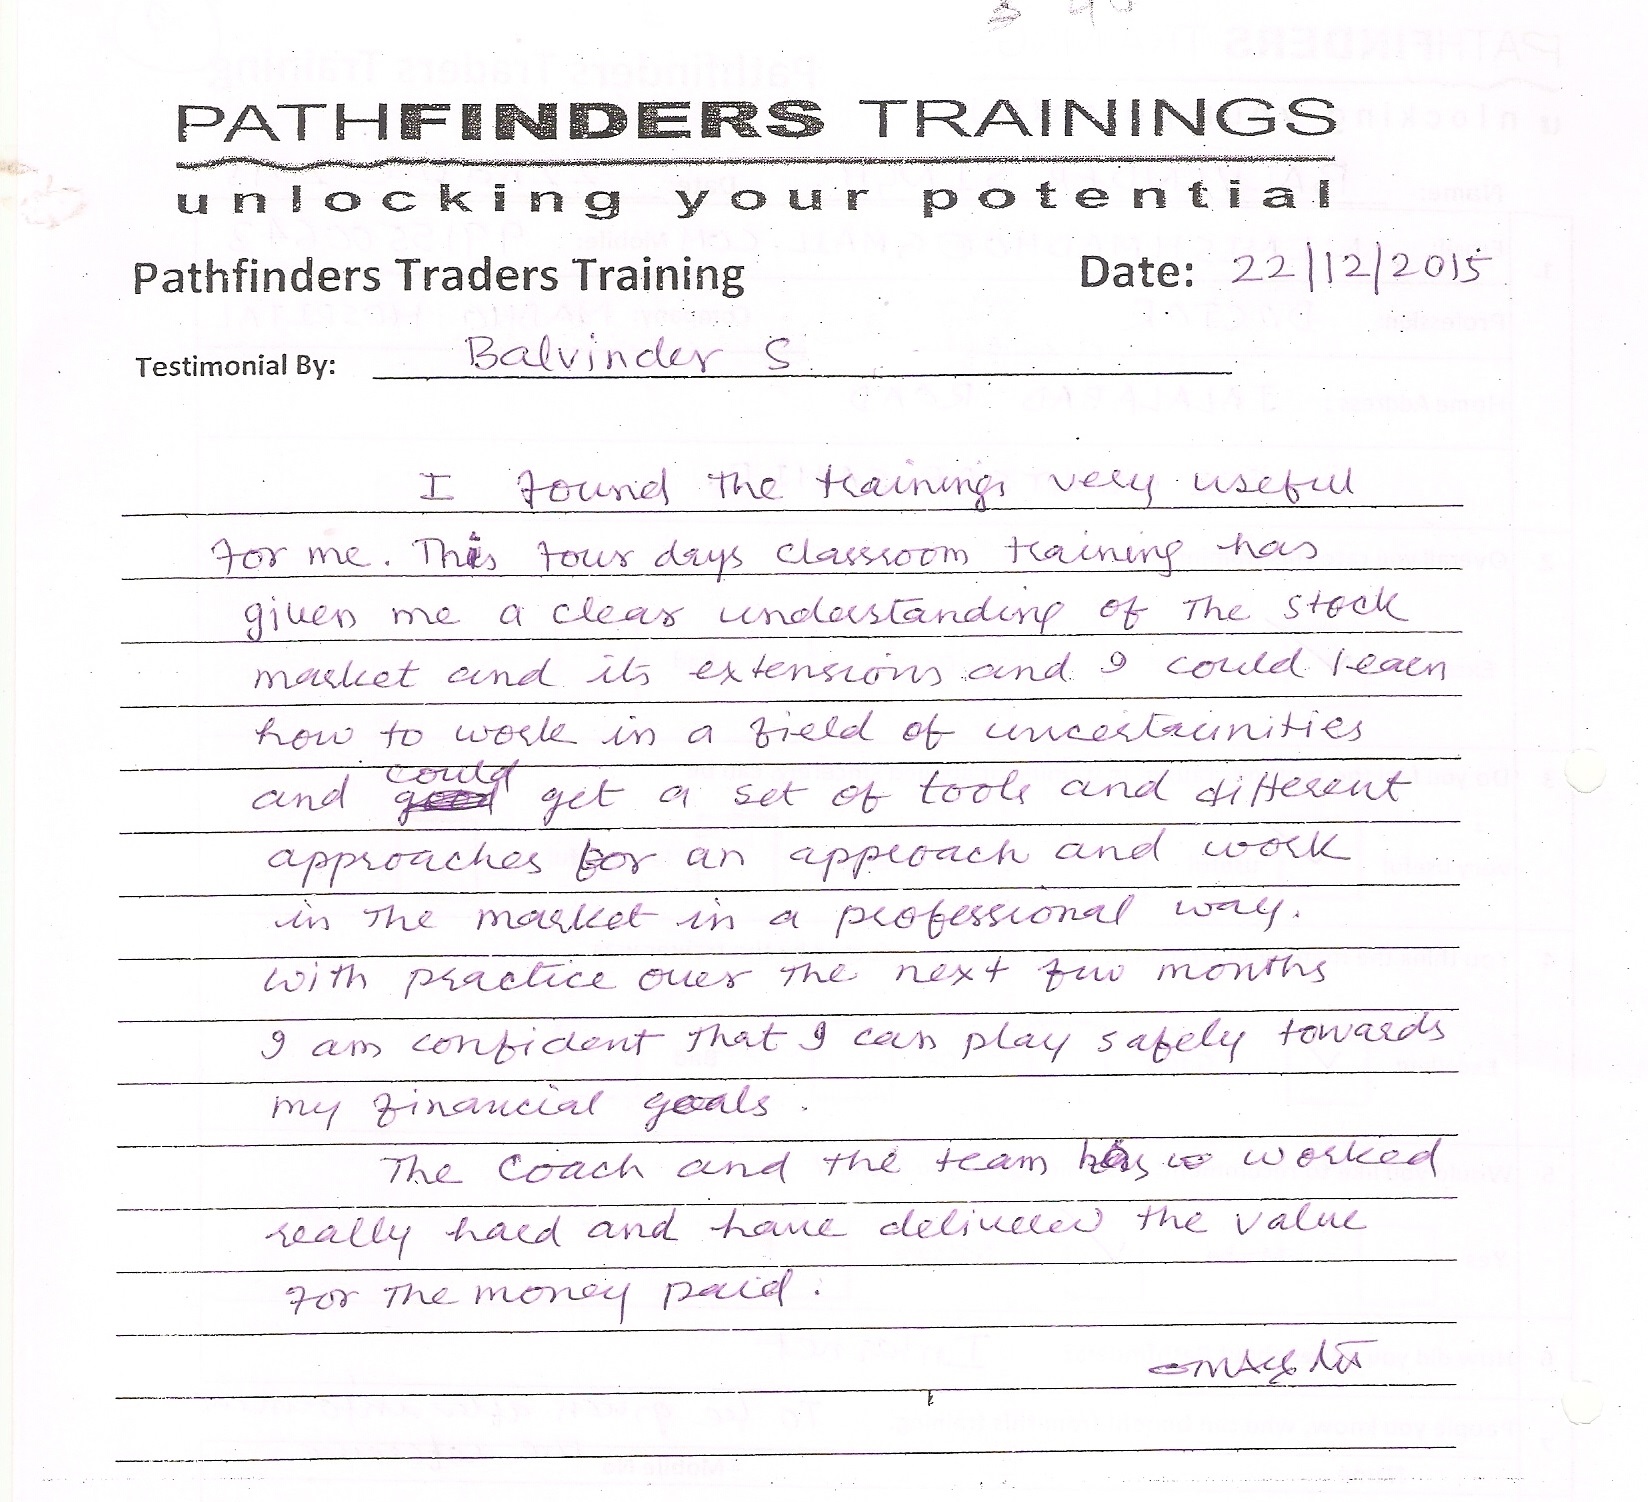 PATHFINDERS TRAININGS
unlocking your potential
Pathfinders Traders Training Date: 22/12/2015
Testimonial By: Balvinder S
I found the trainings very useful
for me. This four days classroom training has
given me a clear understanding of the stock
market and its extensions and I could learn
how to work in a field of uncertaunities
and could get a set of tools and different
approaches for an approach and work
in the market in a professional way.
with practice over the next few months
I am confident that I can play safely towards
my financial goals.
The Coach and the team has worked
really hard and have delivered the value
for the money paid.